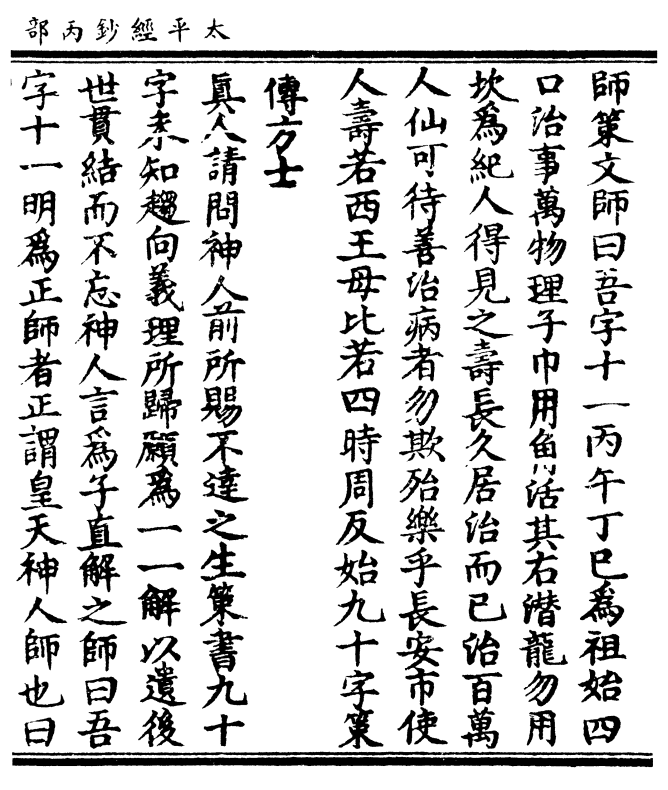 太平經鈔丙部
師策文師曰吾字十一丙午丁巳爲祖始四
口治事萬物理子巾用角活其右潛龍勿用
坎爲紀人得見之壽長久居治而已治百萬
人仙可待善治病者勿欺殆樂乎長安市使
人壽若西王母比若四時周反始九十字策
傳方士
眞人請問神人前所賜不達之生策書九十
字未知趨向義理所歸願爲一一解以遺後
世貫結而不忘神人言爲子直解之師曰吾
字十一明爲正師者正謂皇天神人師也曰